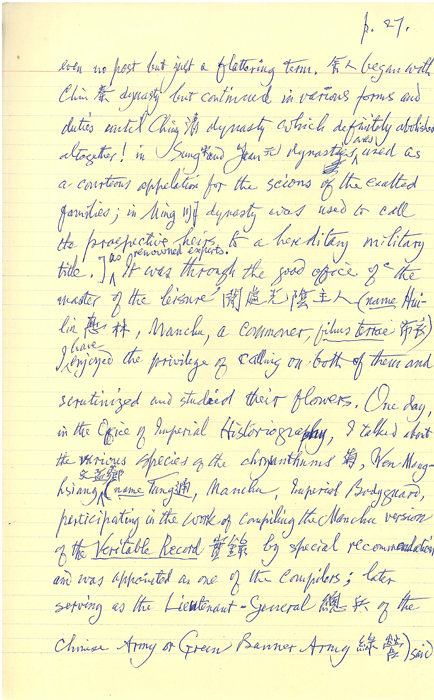 p. 27.
even no post but just a flattering term. 舍人 began with
Chin 秦 dynasty but continued in various forms and
duties until Ching 清 dynasty which definitely abolished
altogether! in Sung 宋 and Yuan 元 dynasty was used as
a courteous appelation for the scions of the exalted
families; in Ming 明 dynasty was used to call
the prospective heirs to a hereditary military
title.] as renowned experts. It was through the good office of the
master of the leisure 閒 光陰主人 (name Hui-
lin 惠林, Manchu, a commoner, filius terrae 布衫)
I have enjoyed the privilege of calling on both of them and
scrutinized and studied their flowers. One day,
in the Office of Imperial Historiography, I talked about
the various species of the chrysanthums 菊, Wen Meng-
hsiang (name Tang, Manchu, Imperial Bodyguard,
participating in the work of compiling the Manchu version
of the Veritable Record 實錄 by special recommendation
and was appointed as one of the compilers; later
serving as the Lieutenant-General 總兵 of the
Chinese Army or Green Banner Army 綠營) said